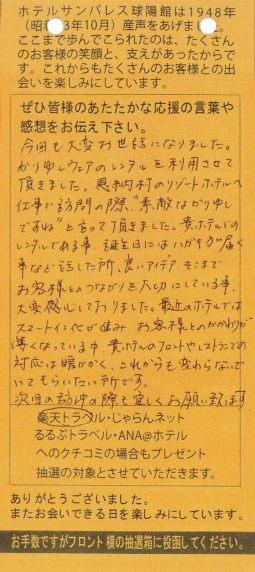 ホテルサンパレス球陽館は1948年
(昭 3年10月)産声をあげました。
ここまで歩んでこられたのは、たくさん
のお客様の笑顔と、支えがあったからで
す。これからもたくさんのお客様との出
会いを楽しみにしています。
ぜひ皆様のあたたかな応援の言葉や
感想をお伝え下さい。
今回も大変お世話になりました。
かりゆしウェアのレンタルを利用させて
頂きました。恩納村のリゾートホテルへ
仕事で訪問の際、"素敵なかりゆし
ですね"と言って頂きました。貴ホテルでの
レンタルである事、誕生日にはハガキが届く
事など話した所、良いアイデア、そこまで
お客様とのつながりを大切にしている事、
大変感心しておりました。最近のホテルでは
スマートイン化が進み、お客様とのかかわりが
薄くなっている中、貴ホテルのフロントやレストランでの
対応は暖かく、これからも変わらないで
いてもらいたい所です。
次回の訪沖の際も宜しくお願い致します
楽天トラベル・じゃらんネット
るるぶトラベル・ANA@ホテル
へのクチコミの場合もプレゼント
抽選の対象とさせていただきます。
ありがとうございました。
またお会いできる日を楽しみにしています。
お手数ですがフロント横の抽選箱に投函してください。